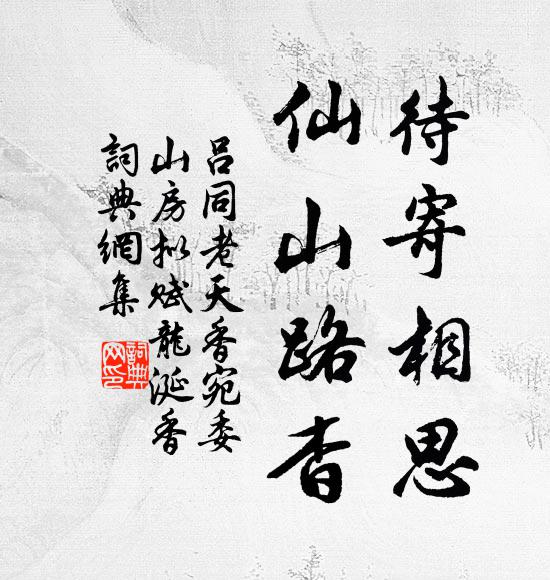 待寄相思
仙山路杳
呂同老天香宛委
山房拟赋龍涎香
詞典網集
詞典
网印